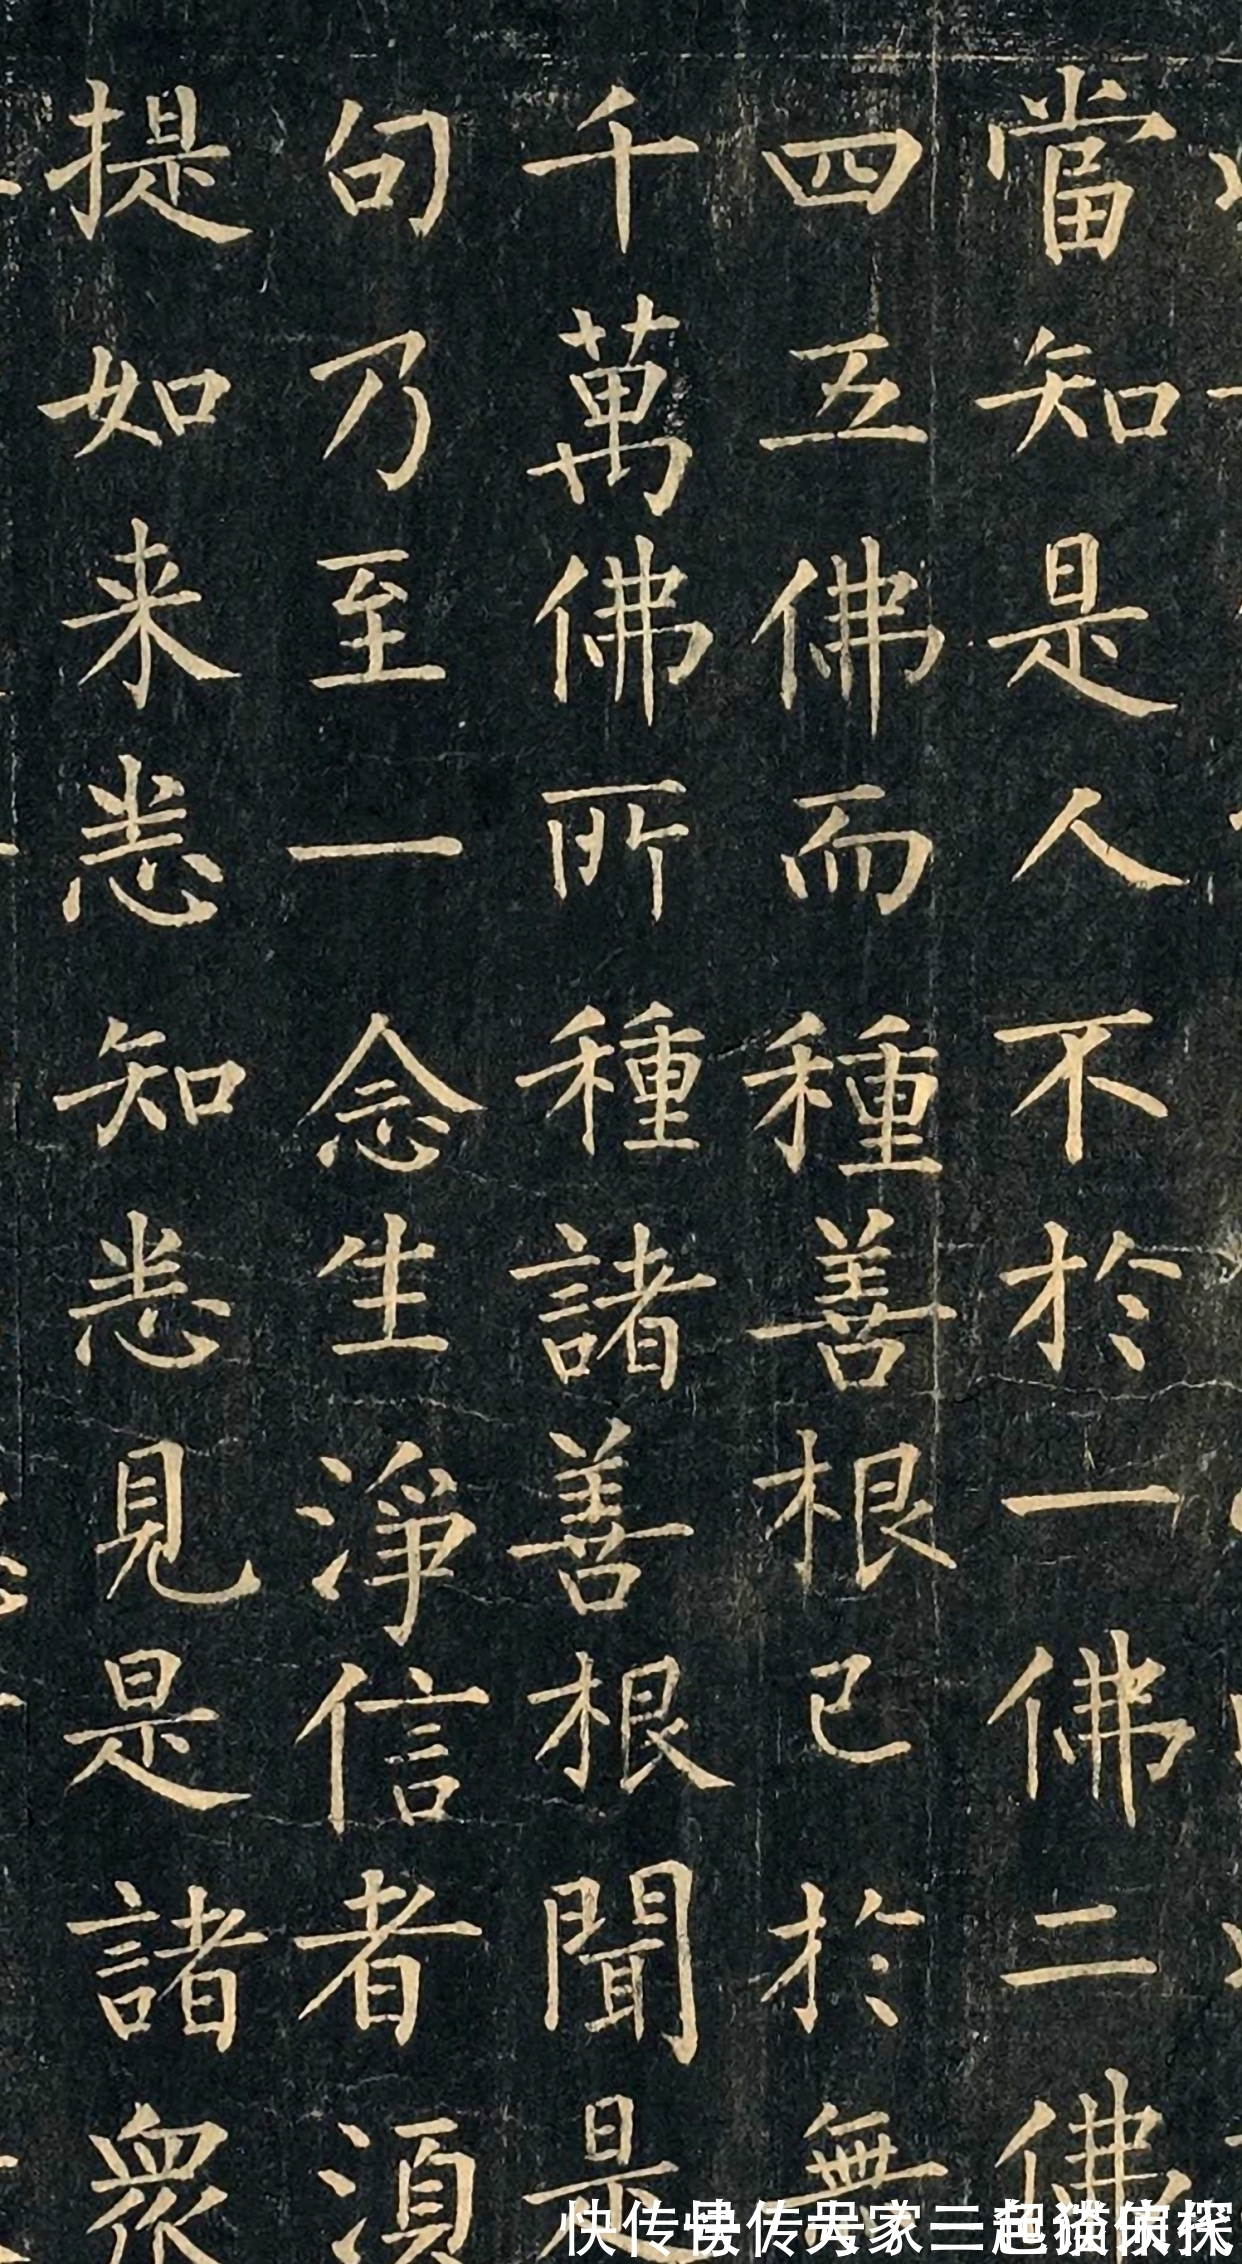 當知是人不於一佛二佛
四五佛而種善根已於無
千萬佛所種諸善根聞是
句乃至一念生淨信者湏
提如来悉知悉見是諸衆